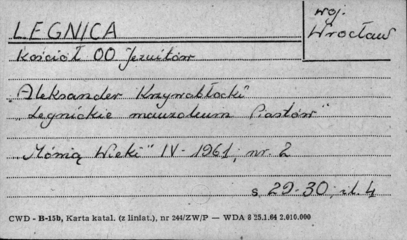 LEGNICA
woj.
Wrocław
Kościół OO Jezuitów
"Aleksander Krzywobłocki"
"Legnickie mauzoleum Piastów"
"Mówią Wieki" IV - 1961, nr. 2
s. 29-30, il. 4
CWD - B-15b, Karta katal. (z liniat.), nr 244/ZW/P — WDA 8 25.1.64 2.010.000